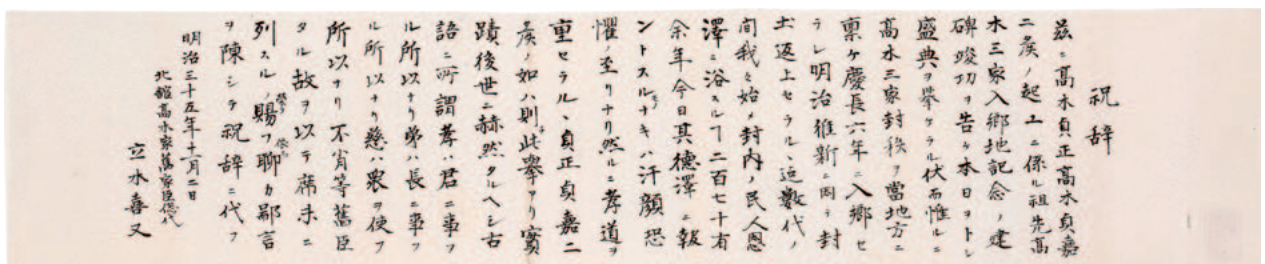 祝辞
茲ニ高木貞正高木貞嘉
二矦ノ起工ニ係ル祖先高
木三家入郷地記念ノ建
碑竣功ヲ告ケ本日ヲトシ
盛典ヲ挙ケラル伏而惟ルニ
高木三家封秩ヲ當地方ニ
禀ケ慶長六年ニ入郷セ
ラレ明治維新ニ因テ封
土返上セラルヽ迠数代ノ
間我々始メ封内ノ民人恩
澤ニ浴スルヿ二百七十有
余年今日其徳澤ニ報
ントスルナキハ汗顔恐
懼ノ至リナリ然ルニ孝道ヲ
重セラルヽ貞正貞嘉二
矦ノ如ハ則此挙アリ實
蹟後世ニ赫然タルヘシ古
語ニ所謂孝ハ君ニ事フ
ル所以ナリ弟ハ長ニ事フ
ル所以ナリ慈ハ衆ヲ使フ
所以ナリ不肖等舊臣
タル故ヲ以テ席末ニ
列スルノ賜フ聊カ鄙言
ヲ陳シテ祝辞ニ代フ
明治三十五年十一月二日
北舘高木家舊家臣惣代
立木喜又